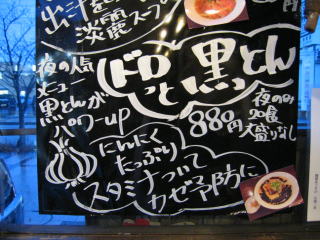 淡麗スープ
夜の人気
メニュー
黒とんが
パワーup
ドロっと黒とん
880円
夜のみ
20食
大盛りなし
にんにく
たっぷり
スタミナついて
カゼ予防に